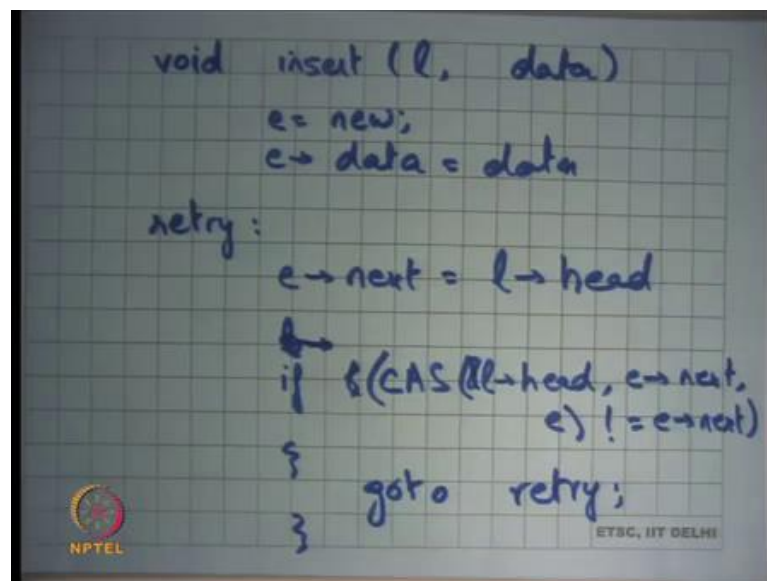 void insert (l, data)
e = new;
e → data = data
retry :
e → next = l → head
if (CAS (&l→head, e→next,
e) != e→next)
{
goto retry;
}
NPTEL
ETSC, IIT DELHI